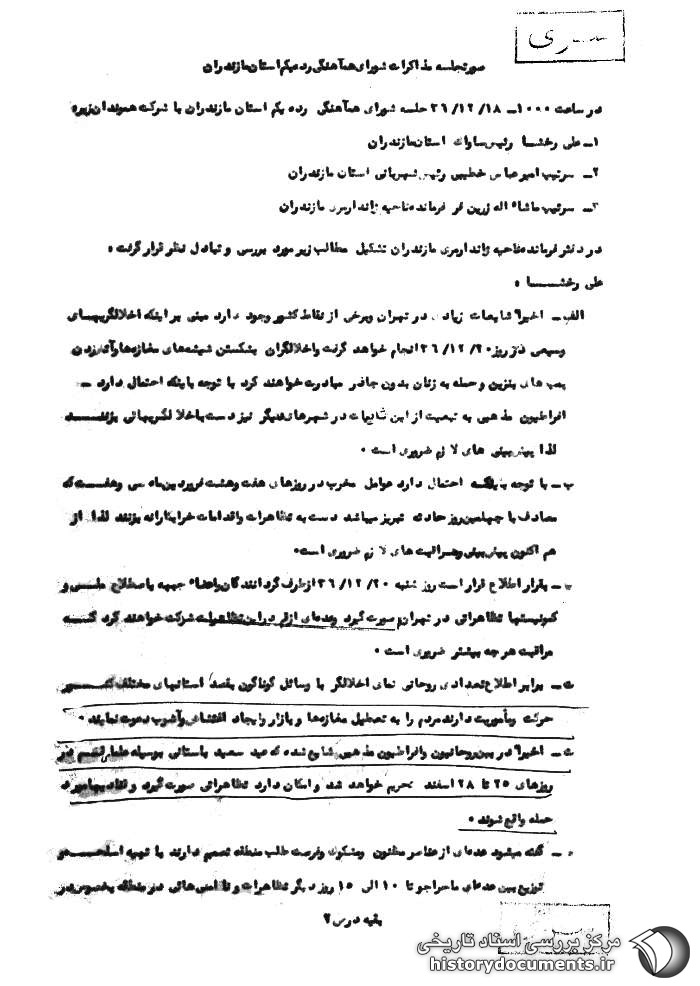 سری
صورتجلسه مذاکرات شورای هم‌آهنگی رده یکم استان مازندران
در ساعت ۱۰۰۰ــ ۱۸/ ۱۲/ ۳۶ جلسه شورای همآهنگی رده یکم استان مازندران با شرکت هموندان زیر
۱ــ علی رخشا رئیس ساواک استان مازندران
۲ــ سرتیپ امیر عباس خطیبی رئیس شهربانی استان مازندران
۳ــ سرتیپ ماشاء اله زرین فر فرمانده ناحیه ژاندارمری مازندران
در دفتر فرمانده ناحیه ژاندارمری مازندران تشکیل مطالب زیر مورد بررسی و تبادل نظر قرار گرفت .
علی رخشا .
الف ــ اخیراً شایعات زیادی در تهران و برخی از نقاط کشور وجود دارد مبنی بر اینکه اخلالگریهای
وسیعی در روز ۲۰/ ۱۲/ ۳۶ انجام خواهد گرفت و اخلالگران بشکستن شیشه‌های مغازه‌ها و آتش زدن
بمب های بنزین و حمله به زنان بدون چادر مبادرت خواهند کرد با توجه باینکه احتمال دارد ــ
افراطیون مذهبی به تبعیت از این شایعات در شهرهای دیگر نیز دست باخلالگریهائی بزنند
لذا پیش‌بینی های لازم ضروری است .
ب ــ با توجه باینکه احتمال دارد عوامل مخرب در روزهای هفت و هشت فروردین ماه سی و هفت که
مصادف با چهلمین روز حادثه تبریز میباشد دست به تظاهرات و اقدامات خرابکارانه بزنند لذا از
هم اکنون پیش‌بینی و مراقبت های لازم ضروری است.
ــ بقرار اطلاع قرار است روز شنبه ۲۰/ ۱۲/ ۳۶ از طرف گردانندگان و اعضاء جبهه باصطلاح ملی و
کمونیستها تظاهراتی در تهران صورت گیرد و عده‌ای از در این تظاهرات شرکت خواهند کرد که
مراقبت هر چه بیشتر ضروری است .
ت ــ برابر اطلاع تعدادی روحانی نمای اخلالگر با وسائل گوناگون بقصد استانهای مختلف کشور
حرکت و مأموریت دارند مردم را به تعطیل مغازه‌ها و بازار و ایجاد اغتشاش و آشوب دعوت نمایند .
ث ــ اخیراً در بین روحانیون و افراطیون مذهبی شایع شده که عید سعید باستانی بوسیله علمای قم در
روزهای ۲۵ تا ۲۸ اسفند تحریم خواهد شد و امکان دارد تظاهراتی صورت گیرد و نقاط مورد
حمله واقع شوند .
ــ گفته میشود عده‌ای از عناصر مظنون و مشکوک و فرصت طلب منطقه تصمیم دارند با تهیه اسلحه و
توزیع بین عده‌ای ماجراجو تا ۱۰ الی ۱۵ روز دیگر تظاهرات و ناامنی هائی در منطقه بخصوص در
بقیه در ص ۲
مرکز بررسی اسناد تاریخی
historydocuments.ir